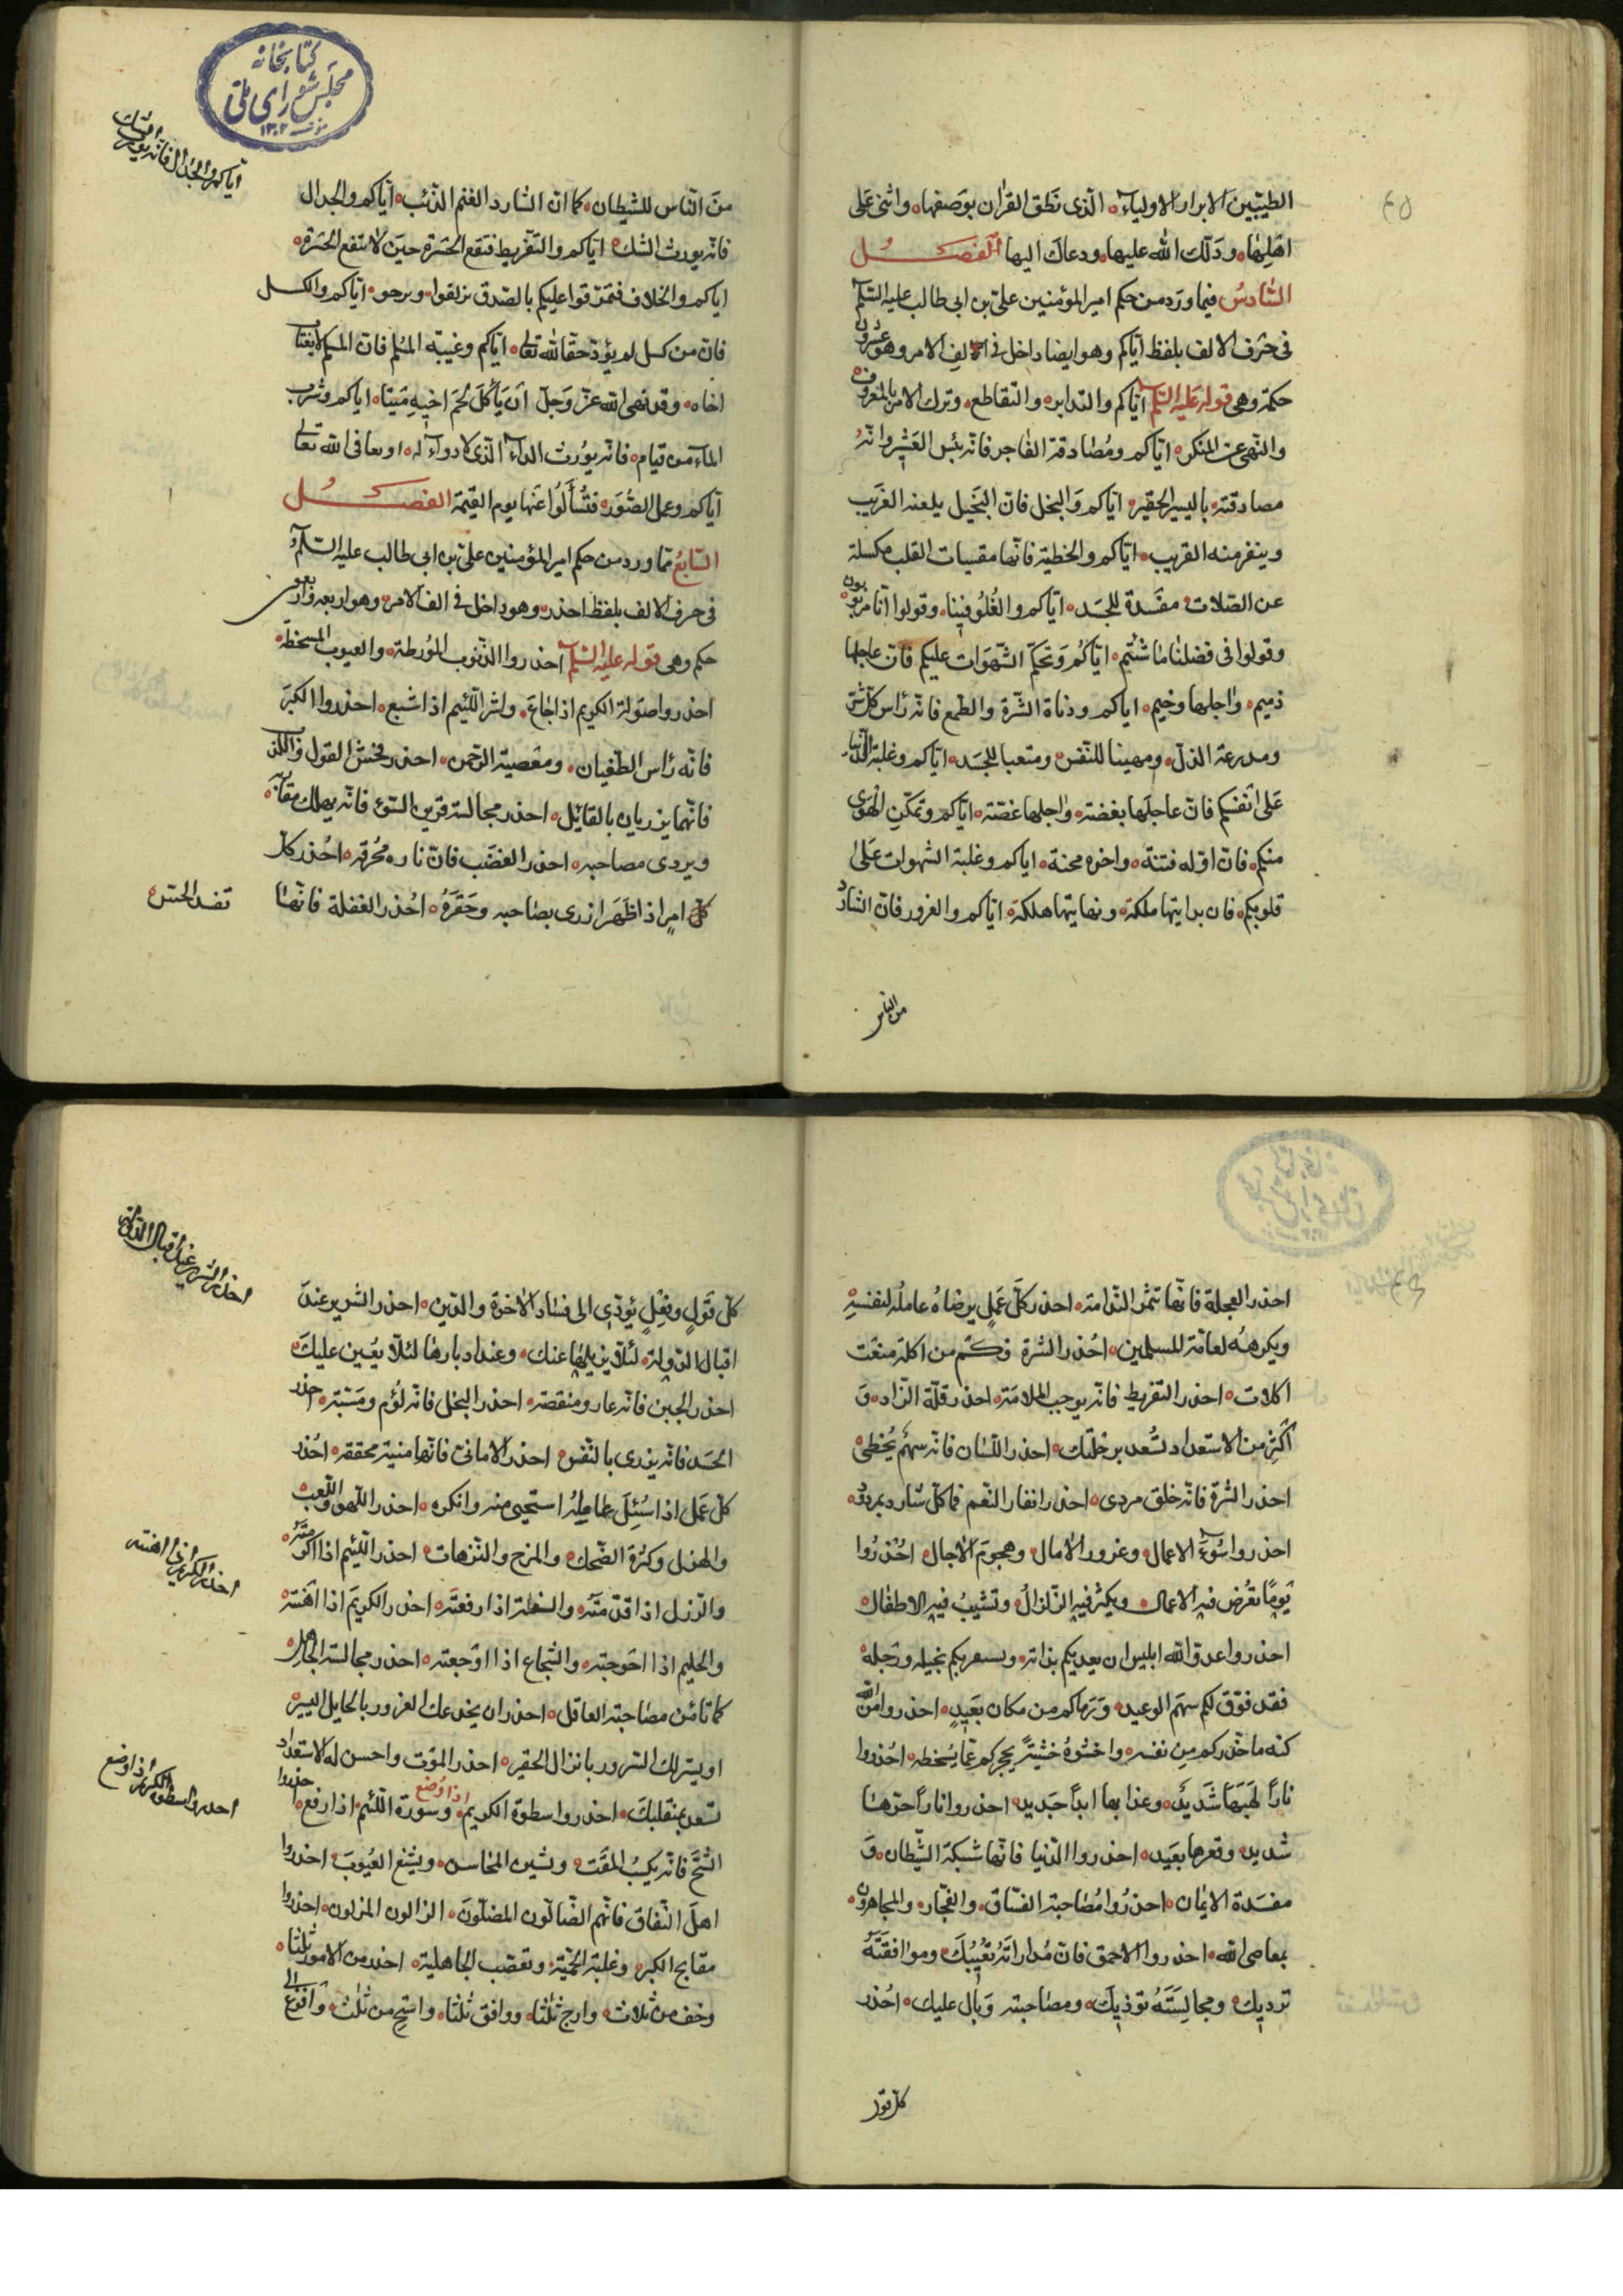 الطيّبين الابرار الاولياء الّذى نَطق القرٰان بوَصفها واثنى عَلى
اهَلِهٰا ودَلّك الله عليها ودعاك اليها الفصل
السّادسُ فيما ورَد من حكم امير المؤمنين علىّ بن ابى طالب عليه السّلم
فى حَرف الالف بلفظ ايّاكم وهو ايضا داخل فى الالفِ الامر وهو عشرون
حكمة وهى قوله عَليه السّلم ايّاكم والتدابر والتقاطع وترك الامر بالمعروف
والنّهى عن المنكر ايّاكم ومُصٰادقة الفٰاجر فانّه بئس العَشير وانّهُ
مصادقته باليسير الحقير ايّاكم وَالبخل فانّ البَخيل يلعنه الغَريب
وينفر منه القريب ايّاكم والخطية فانّها مقسيات القلب مكسلة
عن الصّلات مفسَدة للجسَد ايّاكم والغُلُو فينا وقولوا انّا مربوبون
وقولوا فى فضلنٰا مٰا شئتم ايّاكُم وَتحكّم الشّهوَات عليكم فانّ عاجلها
ذميم وٰاجلها وخيم اياكم ودناة الشّرة والطّمع فانّه رٰاس كلّ شرّ
ومدرعة الذلّ ومهينا للنّفس ومتعبا للجسَد ايّاكم وغلبة الدّنيا
عَلى انفسكم فانّ عاجلهَا بغضته وٰاجلها غصّته ايّاكم وتمكّنِ الهَوى
منكم فانّ اوّله فتنة واخره محنة اياكم وغلبة الشهوات عَلىٰ
قلوبكم فان بدايتها ملكة ونهايتها هلكة ايّاكم والغرور فانّ الشارد
من الناس
ايّاكم والجدال فانّه يورث الشك
منَ النّاس للشّيطان كما انّ الشارد الغنم الذّئب ايّاكم والجدال
فانّه يورث الشك ايّاكم والتّفريط فتقع الحَسَرة حينَ لا تنفع الحَسَرة
اياكم والخلاف فتمرّقوا عليكم بالصّدق تزلفوا وترجو ايّاكم والكسل
فانّ من كسل لم يؤدّ حقّا لله تعالى ايّاكم وغيبة المُسْلم فان المسلم لا يغتاب
اخاه وقد نهى الله عزّ وَجلّ انَ يَأكُلَ لَحُمَ اخيه مَيتا اياكم وشرب
الماء من قيام فانّه يُورث الداء الّذى لا دواء له او يعافى الله تعالى
ايّاكم وعمل الصُّوَر فتُسأَلُوا عَنها يوم القيٰمة الفصل
السّابعُ ممّا ورد من حكم امير المؤمنين علىّ بن ابى طالب عليه السّلم
فى حرف الالف بلفظ احذر وهو داخل فى الف الامر وهو اربعه واربعون
حكم وهى قوله عليه السّلم احذروا الذّنوب المُورطة والعيوب المسخطة
احذروا صَولة الكريم اذا جٰاعَ واشر اللّئيم اذا شبع احذروا الكبَر
فانّه رٰاس الطّغيان ومعَصية الرّحمن احذر فحش القول والكذب
فانّهما يزريان بالقائل احذر مجالسة قرين السّوء فانّه يهلك مقارنه
ويردى مصاحبه احذر الغضَب فانّ ناره محُرقه احُذر كلّ
كلّ امرٍ اذا ظَهَر ازرى بصٰاحبه وحَقّرَهُ احُذر الغفلة فانّها
تفسد الحسّ
احذر العجلة فانّها تثمر النّدامة احذر كلَّ عَملٍ يرضٰاهُ عاملُه لنفسِهِ
ويكرههُ لعامّة للمسلمين احُذر الشرة فكَم من اكلة منعَت
اكلات احذر التّفريط فانّه يوجب الملامَة احذر قلّة الزّاد وَ
اَكَثِر من الاستعداد تسُّعد برحلَتك احذر اللّسٰان فانّه سهمٌ يُخطى
احذر الشّرة فانّه خلق مردى احذر انفار النّعم فما كلّ شارد بمردود
احذروا سُوءَ الاعمال وغرور الاٰمال وهجومَ الاٰجال احُذرُوا
يَومًا تعُرض فيه الاعمال ويكثر فيه الزّلزالُ وتشيبُ فيه الاطفٰال
احذروا عدوّ الله ابليس ان يعديكم بدٰاته ويستفزيكم بخيله ورَجله
فقد فوّق لكم سهَم الوعيد وَرَماكم من مكان بَعيدٍ احذروا من الله
كنه ما حذّركم من نفسه واخشوهُ خشيَةً يحجركم عمّا يُسْخطه احُذروا
نارًا لهبَهَا شَديدٌ وعذابها ابدًا جَديد احذروا نارًا حرّهٰا
شديد وقعرها بعَيد احذروا الدّنيا فانّها شبكة الشّيطان وَ
مفسَدة الايٰمان احذرُوا مُصٰاحبة الفسّاق والفجّار والمجاهرون
بمعاصى الله احذروا الاحمق فانّ مُدارٰاتهُ تعُيبكَ وموٰافقَتَهُ
ترديك ومجالِسَتَهُ تؤذيكَ ومصٰاحبته وَبال عليك احُذر
كلّ قول
احذر الشّرير عند اقبال الدّولة
كلّ قَولٍ وفِعْلٍ يؤدّى الى فسٰاد الاخرة والدّين احذر الشرير عندَ
اقبال الدّولة لئلّا يزيلها عنك وعند ادبارها لئلّا يعُين عليكَ
احذر الجبن فانّه عار ومنقصة احذر البخل فانّه لؤم ومَسبّة احذر
الحسَد فانّه يزرى بالنّفس احذر الامانى فانّها منية محققه احُذر
كلّ عَمَل اذا سُئِلَ عامِلهُ استحيى منه وانكره احذر اللّهو واللّعب
والهزل وكثرة الضّحك والمزح والتّرّهات احذر اللّئيم اذا اكرمته
والرّذل اذا قدّمتَه والسفلة اذا رفعتَه احذر الكريمَ اذا اهَنته
احذر الكريم اذا اهنته
والحليم اذا احَوجته والشّجاع اذا اوَجعته احذر مجالسة الجاهل
كما تأمَن مصٰاحبة العاقل احذر ان يخدعك الغرور بالحايل اليسير
او يستزلك السّرور بالزائل الحقير احذر الموَت واحسن له الاستعداد
تسعد بمنقلبكَ احذروا سطوة الكريم اذا وُضع وسورة اللّئيم اذا رفع احذروا
احذروا سطوة الكريم اذا وضع
الشُّحَّ فانّه يكَسِبُ المقَت ويشين المحٰاسن ويشيع العُيوبَ احذروا
اهلَ النّفاق فانّهم الضّالّون المضلّونَ الزالون المزلون احذروا
مقابح الكبر وغلبة الحَميّة وتعصّب الجٰاهلية احذر من الامور ثلثا
وخف من ثلاث وارج ثلٰثا ووافق ثلٰثا واستحِ من ثلٰث وافزع الى